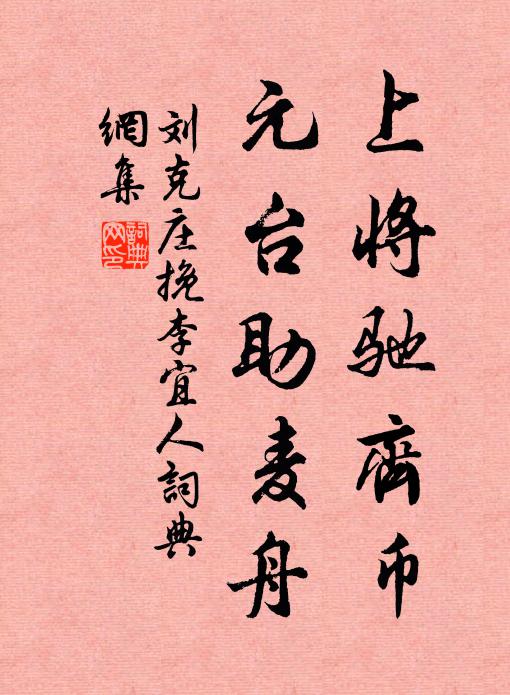 上将驰齊币
元台助麦舟
刘克庄挽李宜人詞典
網集
詞典
网印